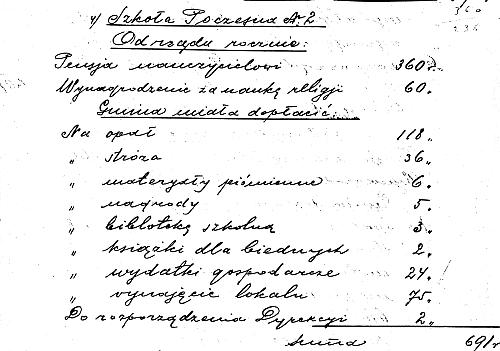 4/ Szkoła Poczesna № 2
Od rządu rocznie:
Pensja nauczycielowi 360 „
Wynagrodzenie za naukę religji 60 „
Gmina miała dopłacić:
Na opał 118 „
„ stróża 36 „
„ materyały piśmienne 6 „
„ nagrody 5 „
„ biblotekę szkolną 3 „
„ książki dla biednych 2 „
„ wydatki gospodarcze 24 „
„ wynajęcie lokalu 75 „
Do rozporządzenia Dyrekcyi 2 „
suma 691